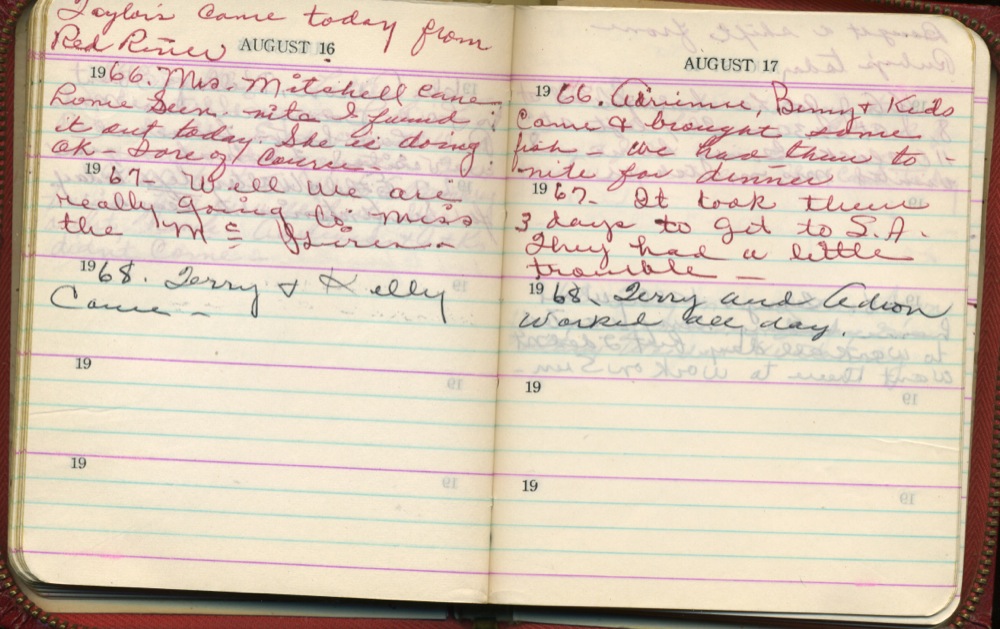 Taylors came today from
Red River
AUGUST 16
1966. Mrs. Mitchell came
home Sun. nite I found
it out today. She is doing
OK - Sore of course -
1967 - Well we are
really going to miss
the Mc
1968. Terry & Kelly
Came -
19
19
AUGUST 17
1966. Adrienne, Benny & Kids
Came & brought some
fish - we had them to -
nite for dinner
1967 - It took them
3 days to get to S.A.
They had a little
trouble -
1968. Terry and
worked all day.
19
19